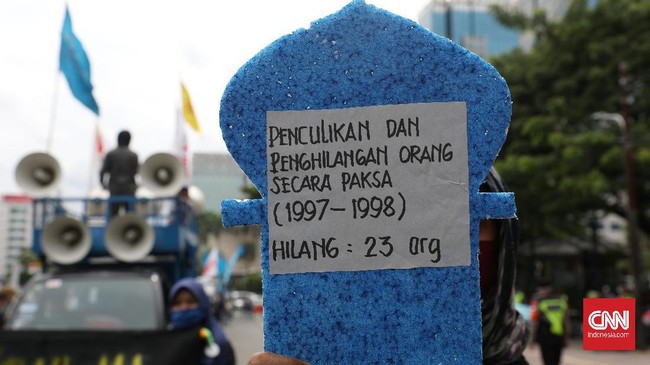 PENCULIKAN DAN
PENGHILANGAN ORANG
SECARA PAKSA
(1997-1998)
HILANG : 23 org
CNN
Indonesia.com